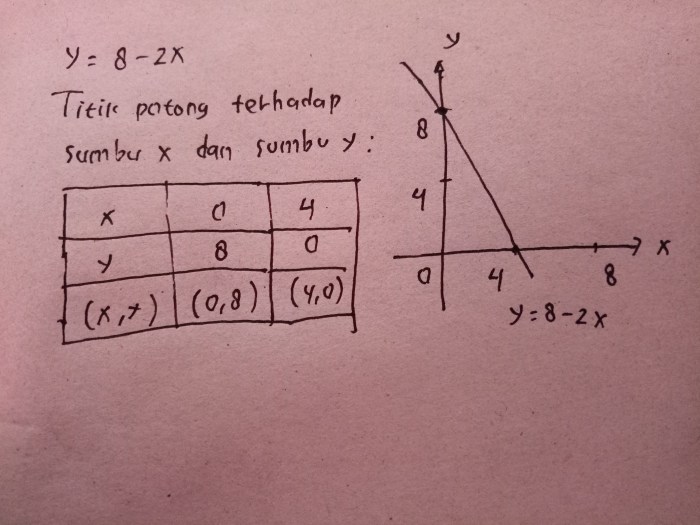 y = 8 - 2x
Titik potong terhadap
sumbu x dan sumbu y :
x 0 4
y 8 0
(x,y) (0,8) (4,0)
y
8
4
0 4 8 x
y = 8 - 2x